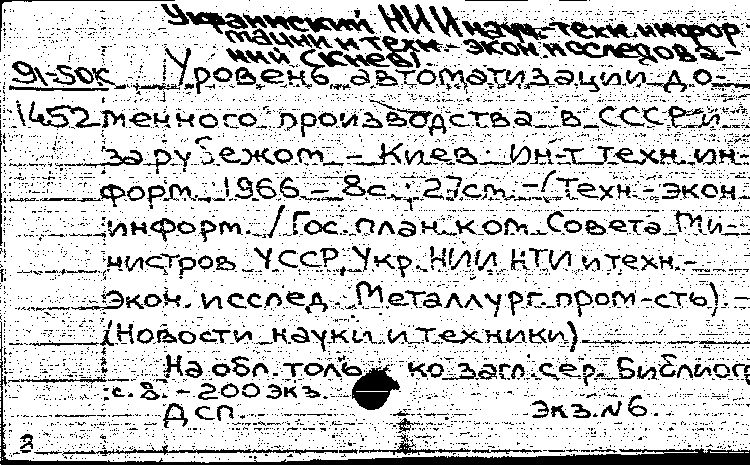 Украинский НИИ науч.-техн. инфор
мации и техн.-экон. исследова-
ний (Киев).
91-50к Уровень автоматизации до-
1452 менного производства в СССР и
за рубежом. - Киев: Ин-т техн. ин-
форм., 1966. - 8с.; 27см. - (Техн.-экон.
информ. / Гос. план. ком. Совета Ми-
нистров УССР, Укр. НИИ НТИ и техн.-
экон. исслед. Металлург. пром-сть). -
(Новости науки и техники).
На обл. только загл. сер. Библиогр
: с. 8. - 200 экз.
Дсп. Экз. №6.
3